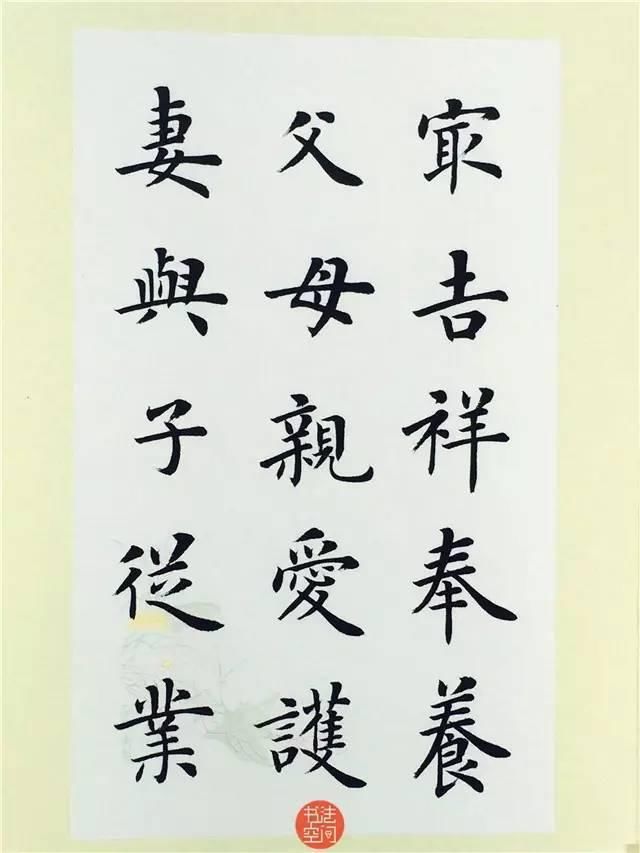 冣吉祥奉養
父母親愛護
妻與子從業
书法空间